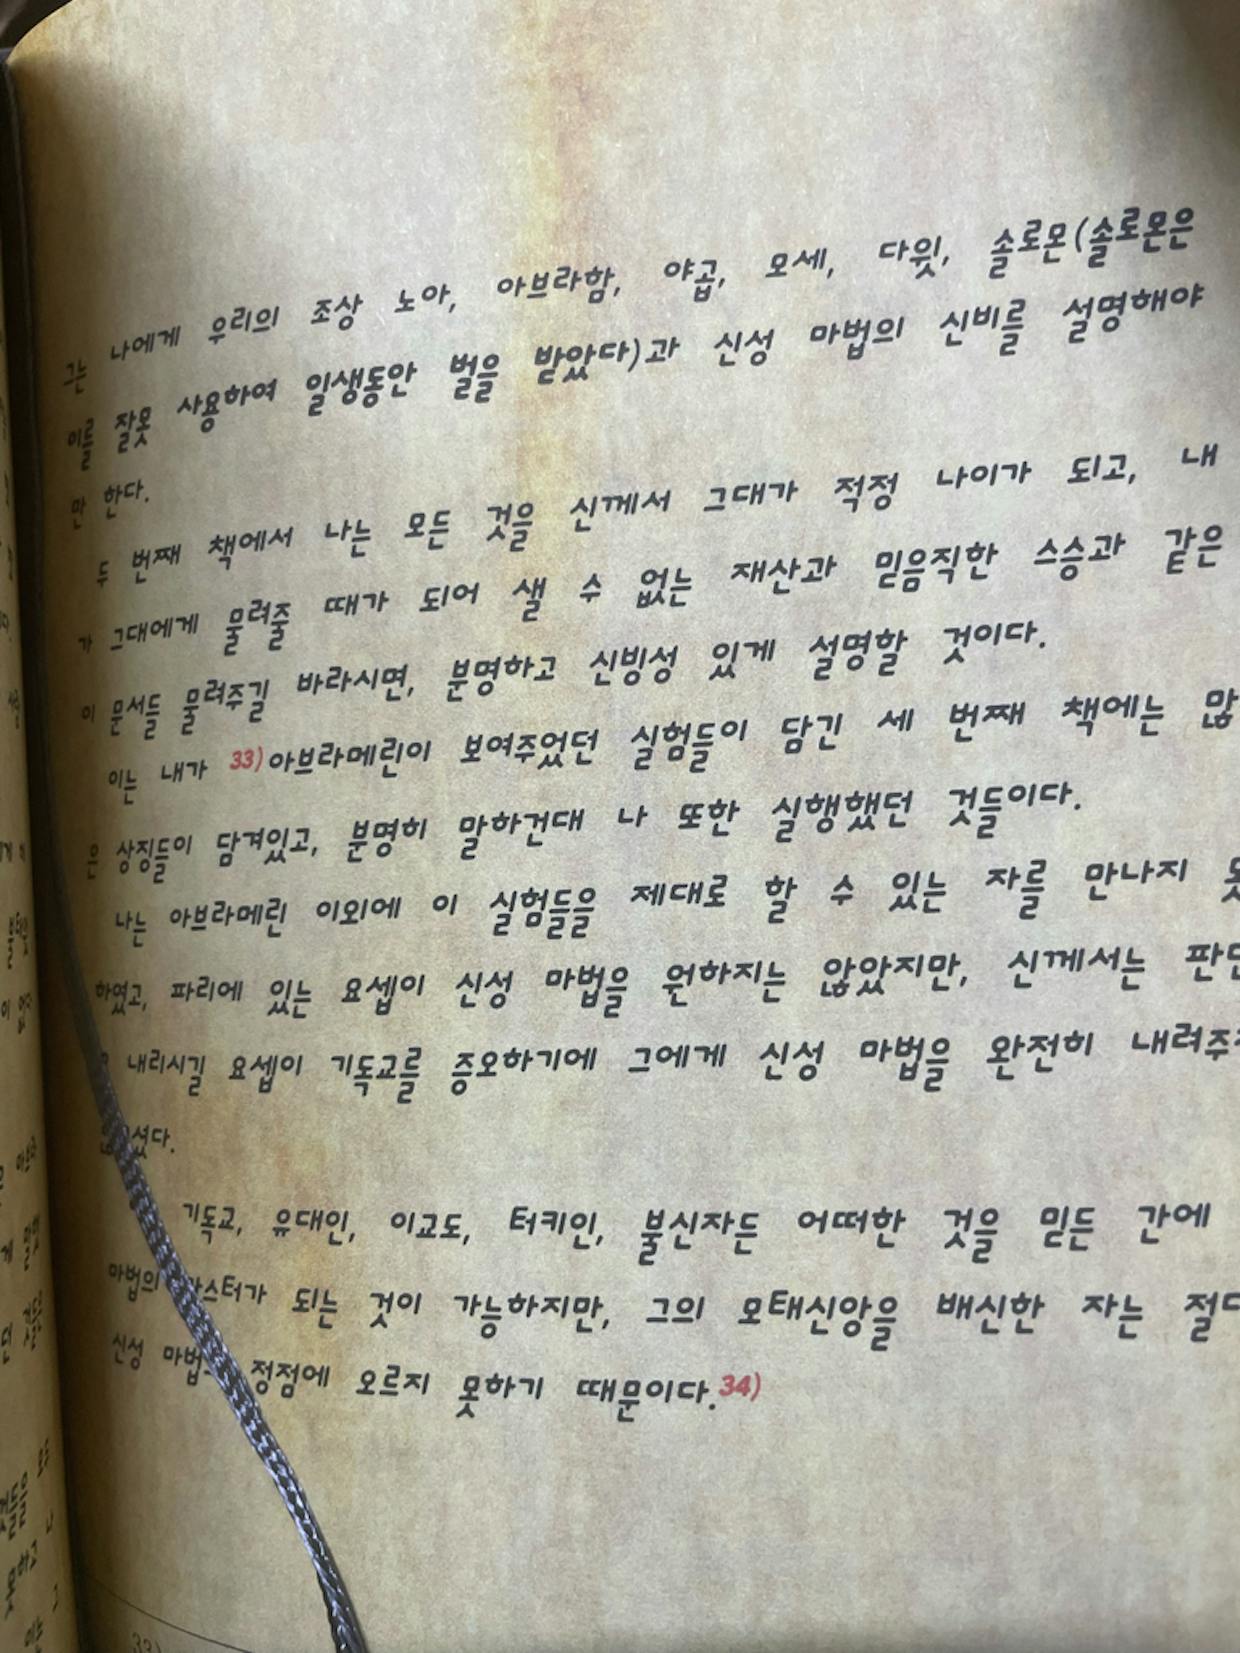 그는 나에게 우리의 조상 노아, 아브라함, 야곱, 모세, 다윗, 솔로몬(솔로몬은
이를 잘못 사용하여 일생동안 벌을 받았다)과 신성 마법의 신비를 설명해야
만 한다.
두 번째 책에서 나는 모든 것을 신께서 그대가 적정 나이가 되고, 내
가 그대에게 물려줄 때가 되어 샐 수 없는 재산과 믿음직한 스승과 같은
이 문서들 물려주길 바라시면, 분명하고 신빙성 있게 설명할 것이다.
이는 내가 33)아브라메린이 보여주었던 실험들이 담긴 세 번째 책에는 많
은 상징들이 담겨있고, 분명히 말하건대 나 또한 실행했던 것들이다.
나는 아브라메린 이외에 이 실험들을 제대로 할 수 있는 자를 만나지 못
하였고, 파리에 있는 요셉이 신성 마법을 원하지는 않았지만, 신께서는
내리시길 요셉이 기독교를 증오하기에 그에게 신성 마법을 완전히
기독교, 유대인, 이교도, 터키인, 불신자든 어떠한 것을 믿든 간에
마법의 되는 것이 가능하지만, 그의 모태신앙을 배신한 자는
신성 정점에 오르지 못하기 때문이다.34)
33)